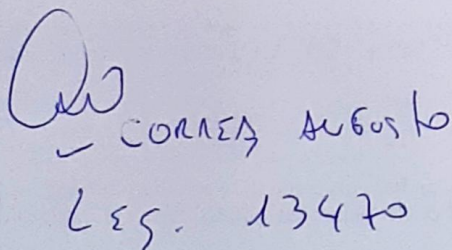 CORREA AUGUSTO
LEG. 13470